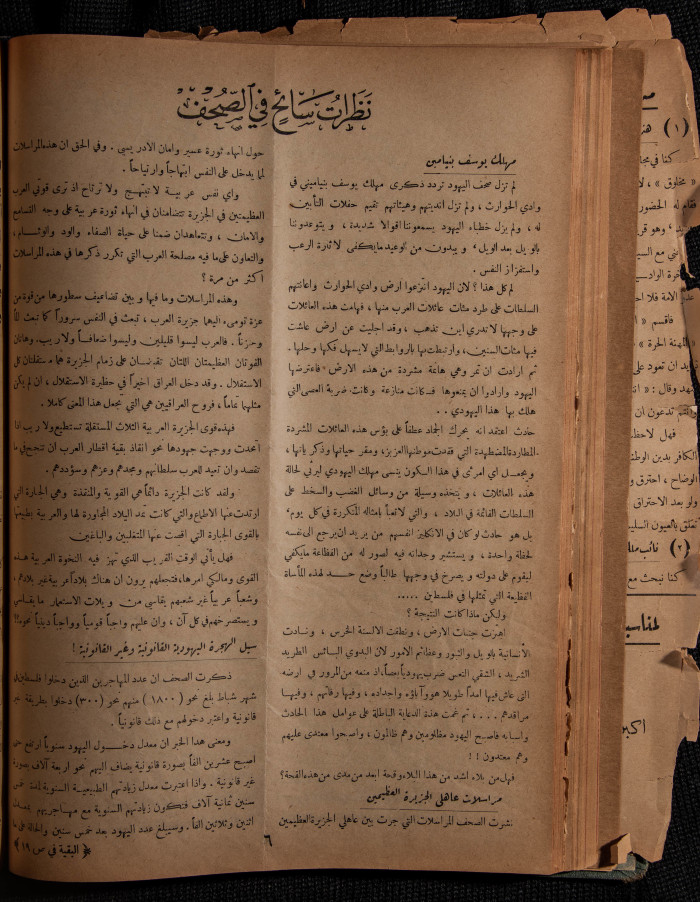 نظرات سائح في الصحف
مهلك يوسف بنيامين
لم تزل صحف اليهود تردد ذكرى مهلك يوسف بنياميني في
وادي الحوارث، ولم تزل انديتهم وهيئاتهم تقيم حفلات التأبين
له، ولم يزل خطباء اليهود يسمعوننا اقوالا شديدة، ويتوعدوننا
بالويل بعد الويل، ويبدون من توعيد ما يكفي لاثارة الرعب
واستفزاز النفس.
لم كل هذا؟ لان اليهود انتزعوا ارض وادي الحوارث واعانتهم
السلطات على طرد مئات عائلات العرب منها، فهامت هذه العائلات
على وجهها لا تدري اين تذهب، وقد اجليت عن ارض عاشت
فيها مئات السنين، وارتبطت بها بالروابط التي لا يسهل فكها وحلها.
ثم ارادت ان تمر وهي هائمة مشردة من هذه الارض، فاعترضها
اليهود وارادوا ان يمنعوها فكانت منازعة وكانت ضربة العصى التي
هلك بها هذا اليهودي..
حادث اعتقد انه يحرك الجماد عطفاً على بؤس هذه العائلات المشردة
المطاردة المضطهدة التي فقدت موطنها العزيز، ومقر حياتها وذكرياتها،
ويجعل اي امرئ في هذا الكون ينسى مهلك اليهودي ليرثي لحالة
هذه العائلات، ويتخذه وسيلة من وسائل الغضب والسخط على
السلطات القائمة في البلاد، والتي لا تعبأ بامثاله المتكررة في كل يوم،
بل هو حادث لو كان في الانكليز انفسهم من يريد ان يرجع الى نفسه
لحظة واحدة، ويستشير وجدانه فيه لصور له من الفظاعة ما يكفي
ليقوم على دولته ويصرخ في وجهها طالباً وضع حد لهذه المأساة
الفظيعة التي تمثلها في فلسطين.....
ولكن ماذا كانت النتيجة؟
اهتزت جنبات الارض، ونطقت الالسنة الخرس، ونادت
الانسانية بالويل والثبور وعظائم الامور لان البدوي البائس الطريد
الشريد، الشقي التعس ضرب يهودياً بعصاً، اذ منعه من المرور في ارضه
التي عاش فيها امداً طويلا هو وآباؤه واجداده، وفيها رفاتهم، وفيها
مراقدهم.... ثم غمت هذه الدعاية الباطلة على عوامل هذا الحادث
واسبابه فاصبح اليهود مظلومين وهم ظالمون، واصبحوا معتدى عليهم
وهم معتدون!!
فهل من بلاء اشد من هذا البلاء وقحة ابعد من مدى من هذه القحة؟
مراسلات عاهلي الجزيرة العظيمين
نشرت الصحف المراسلات التي جرت بين عاهلي الجزيرة العظيمين
حول انهاء ثورة عسير وامان الادريسي. وفي الحق ان هذه المراسلات
لما يدخل على النفس ابتهاجاً وارتياحاً.
واي نفس عربية لا تبتهج ولا ترتاح اذ ترى قوتي العرب
العظيمتين في الجزيرة تتضامنان في انهاء ثورة عربية على وجه التسامح
والامان، وتتعاهدان ضمناً على حياة الصفاء والود والوئام،
والتعاون على ما فيه مصلحة العرب التي تكرر ذكرها في هذه المراسلات
اكثر من مرة؟
وهذه المراسلات وما فيها وبين تضاعيف سطورها من قوة من
عزة تومىء اليها جزيرة العرب، تبعث في النفس سروراً كما تبعث الماً
وحزناً. فالعرب ليسوا قليلين وليسوا ضعافاً ولا ريب. وهاتان
القوتان العظيمتان اللتان تقبضان على زمام الجزيرة هما مستقلتان كل
الاستقلال. وقد دخل العراق اخيراً في حظيرة الاستقلال، ان لم يكن
مثلهما تماماً، فروح العراقيين هي التي تجعل هذا المعنى كاملا.
فهذه قوى الجزيرة العربية الثلاث المستقلة تستطيع ولا ريب اذا
اتحدت ووجهت جهودها نحو انقاذ بقية اقطار العرب ان تنجح في ما
تقصد وان تعيد للعرب سلطانهم ومجدهم وعزهم وسؤددهم.
ولقد كانت الجزيرة دائماً هي القوية والمنقذة وهي الجبارة التي
ارتدت عنها الاطماع والتي كانت تمد البلاد المجاورة لها والعربية بطبيعتها
بالقوى الجبارة التي اقصت عنها المتغلبين والباغين
فهل يأتي الوقت القريب الذي تهز فيه النخوة العربية هذه
القوى ومالكي امرها، فتجعلهم يرون ان هناك بلاداً عربية غير بلادهم،
وشعباً عربياً غير شعبهم يقاسي من ويلات الاستعمار ما يقاسي
ويستصرخهم في كل آن، وان عليهم واجباً قومياً وواجباً دينياً نحوه!!
سيل الهجرة اليهودية القانونية وغير القانونية!
ذكرت الصحف ان عدد المهاجرين الذين دخلوا فلسطين في
شهر شباط بلغ نحو (١٨٠٠) منهم نحو (٣٠٠) دخلوا بطريقة غير
قانونية واعتبر دخولهم مع ذلك قانونياً.
ومعنى هذا الخبر ان معدل دخول اليهود سنوياً ارتفع حتى
اصبح عشرين الفاً بصورة قانونية يضاف اليهم نحو اربعة آلاف بصورة
غير قانونية. واذا اعتبرت معدل زيادتهم الطبيعية السنوية لمدة خمس
سنين ثمانية آلاف فتكون زيادتهم السنوية مع مهاجريهم بمعدل
اثنين وثلاثين الفاً. وسيبلغ عدد اليهود بعد خمس سنين والحالة على ما
﴿البقية في ص ١٩﴾
٦
(١)
كنا في مجا
« مخلوق »، لا
فقام له الحضور
فاقسم « ا
المهنة الحرة »
ان تعود على
وقال: « ان
تدعون ان
فهل لاحظ
الكافر بدين الوطن
الوضاح، احترق و
ولو بعد الاحتراق
تعلق بالعيون
(٢)
كنا نبحث مع
لمناسب
اكبر